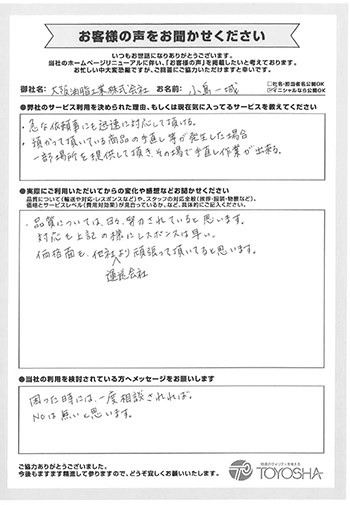 お客様の声をお聞かせください
いつもお世話になりありがとうございます。
当社のホームページリニューアルに伴い、「お客様の声」を掲載したいと考えております。
お忙しい中大変恐縮ですが、ご回答にご協力いただけますと幸いです。
御社名: 大阪油脂工業株式会社 お名前: 小島一城
□社名・担当者名公開OK
☑イニシャルなら公開OK
●弊社のサービス利用を決められた理由、もしくは現在気に入ってるサービスを教えてください
・急な依頼事にも迅速に対応して頂ける。
・預かって頂いている商品の手直し等が発生した場合
一部場所を提供して頂き、その場で手直し作業が出来る。
●実際にご利用いただいてからの変化や感想などお聞かせください
品質について(輸送や対応・レスポンスなど)や、スタッフの対応全般(挨拶・服装・勤務など)、
価格とサービスレベル(費用対効果)が見合っているか、など、具体的にご記入ください。
・品質については、日々、努力されていると思います。
対応も上記の様にレスポンスは早い。
価格面も、他社より頑張って頂いてると思います。
運送会社
●当社の利用を検討されている方へメッセージをお願いします
困った時には、一度相談されれば。
NOは無いと思います。
ご協力ありがとうございました。
今後もますます精進して参りますので、どうぞ宜しくお願いいたします。
TOYOSHA